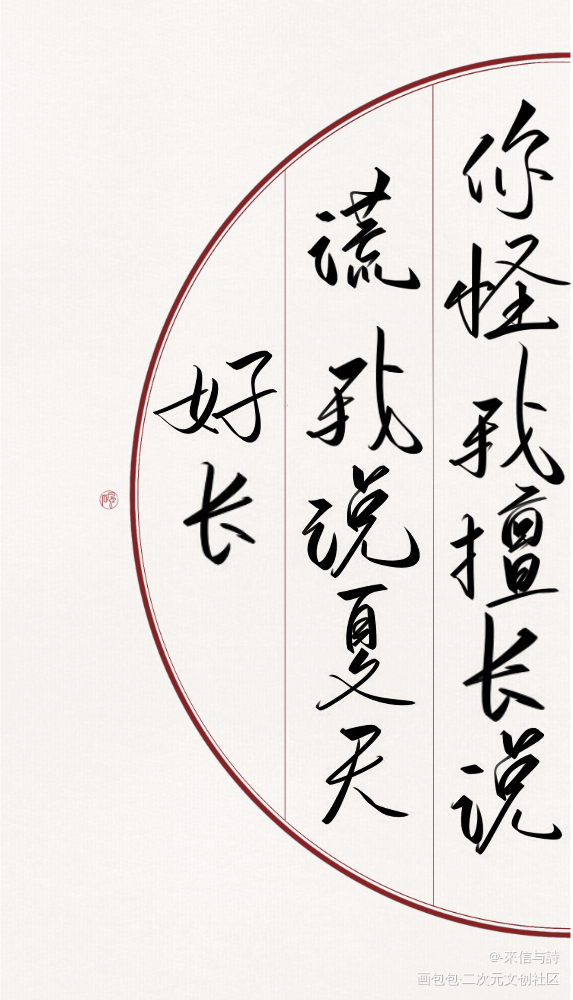 你怪我擅长说
谎我说夏天
好长
@-來信与詩
画包包·二次元文创社区